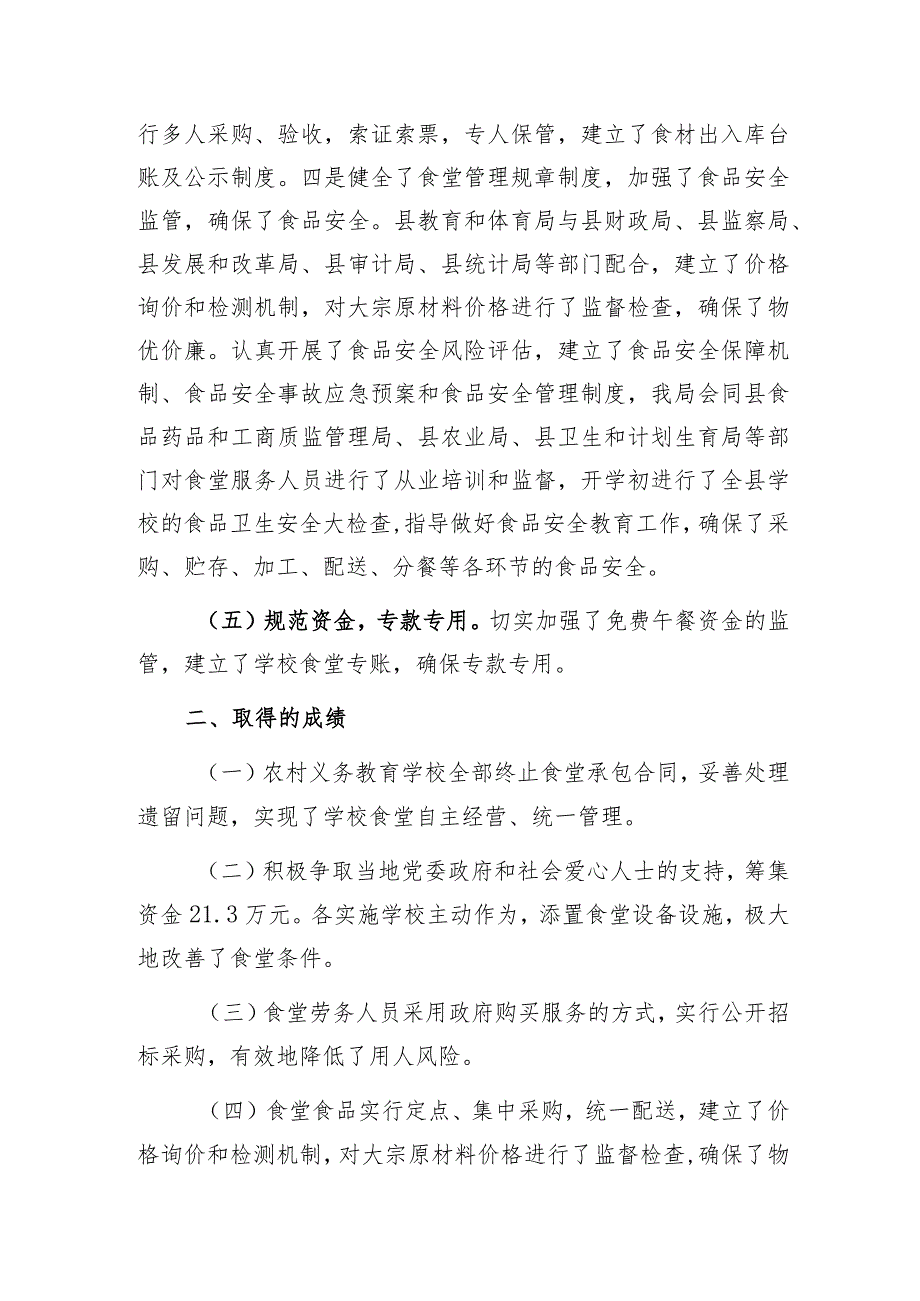 行多人采购、验收，索证索票，专人保管，建立了食材出入库台
账及公示制度。四是健全了食堂管理规章制度，加强了食品安全
监管，确保了食品安全。县教育和体育局与县财政局、县监察局、
县发展和改革局、县审计局、县统计局等部门配合，建立了价格
询价和检测机制，对大宗原材料价格进行了监督检查，确保了物
优价廉。认真开展了食品安全风险评估，建立了食品安全保障机
制、食品安全事故应急预案和食品安全管理制度，我局会同县食
品药品和工商质监管理局、县农业局、县卫生和计划生育局等部
门对食堂服务人员进行了从业培训和监督，开学初进行了全县学
校的食品卫生安全大检查,指导做好食品安全教育工作，确保了采
购、贮存、加工、配送、分餐等各环节的食品安全。
（五）规范资金，专款专用。切实加强了免费午餐资金的监
管，建立了学校食堂专账，确保专款专用。
二、取得的成绩
（一）农村义务教育学校全部终止食堂承包合同，妥善处理
遗留问题，实现了学校食堂自主经营、统一管理。
（二）积极争取当地党委政府和社会爱心人士的支持，筹集
资金 21.3 万元。各实施学校主动作为，添置食堂设备设施，极大
地改善了食堂条件。
（三）食堂劳务人员采用政府购买服务的方式，实行公开招
标采购，有效地降低了用人风险。
（四）食堂食品实行定点、集中采购，统一配送，建立了价
格询价和检测机制，对大宗原材料价格进行了监督检查,确保了物